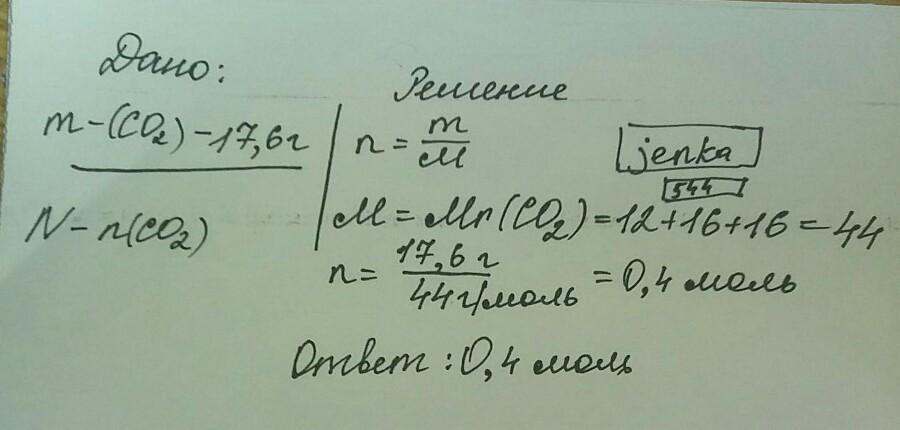 Дано:
m-(CO₂)-17,6г
N-n(CO₂)
Решение
n = m/M
jenka
544
M = Mr(CO₂)=12+16+16=44
n= 17,6 г/44г/моль = 0,4 моль
Ответ : 0,4 моль